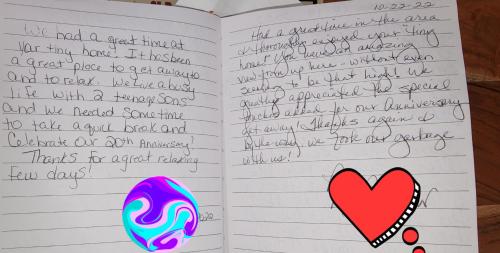 We had a great time at
your tiny home! It has been
a great place to get away to
and to relax. We live a busy
life with 2 teenage sons
and we needed sometime
to take a quick break and
Celebrate our 20th Anniversary!
Thanks for a great relaxing
few days!
10-22-22
Had a great time in the area
& thoroughly enjoyed your "tiny
home". You have an amazing
view from up here - without even
seeming to be that high! We
greatly appreciated the special
touches added for our Anniversary
get away! Thanks again &
by the way, we took our garbage
with us!